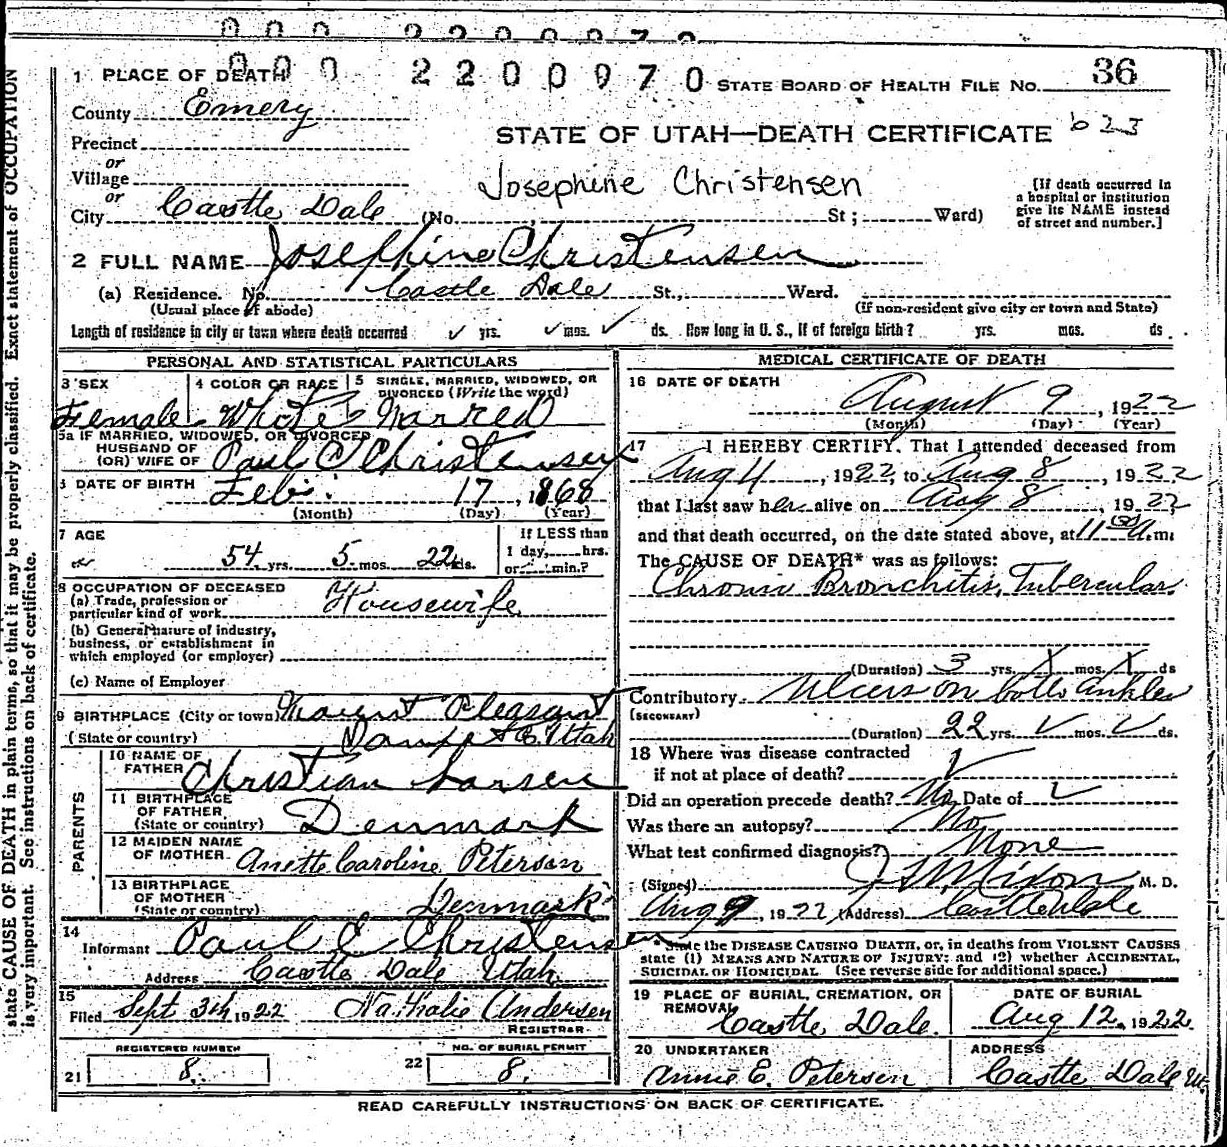 000 2200970
1 PLACE OF DEATH 000 2200970 STATE BOARD OF HEALTH FILE No. 36
County Emery
STATE OF UTAH—DEATH CERTIFICATE 623
Precinct
or
Village
Josephine Christensen
or
City Castle Dale (No. , St; Ward)
[If death occurred in
a hospital or institution
give its NAME instead
of street and number.]
2 FULL NAME Josephine Christensen
(a) Residence. No. Castle Dale St., Ward.
(Usual place of abode) (If non-resident give city or town and State)
Length of residence in city or town where death occurred ✓ yrs. ✓ mos. ✓ ds. How long in U. S., if of foreign birth? yrs. mos. ds.
PERSONAL AND STATISTICAL PARTICULARS
3 SEX 4 COLOR OR RACE 5 SINGLE, MARRIED, WIDOWED, OR
DIVORCED (Write the word)
Female White Married
5a IF MARRIED, WIDOWED, OR DIVORCED
HUSBAND OF
(OR) WIFE OF Paul C Christensen
6 DATE OF BIRTH Feb. 17, 1868
(Month) (Day) (Year)
7 AGE If LESS than
54 yrs. 5 mos. 22 ds. 1 day, hrs.
or min.?
8 OCCUPATION OF DECEASED
(a) Trade, profession or
particular kind of work Housewife
(b) General nature of industry,
business, or establishment in
which employed (or employer)
(c) Name of Employer
9 BIRTHPLACE (City or town) Mount Pleasant
(State or country) Sanpete Utah
PARENTS
10 NAME OF
FATHER Christian Larsen
11 BIRTHPLACE
OF FATHER
(State or country) Denmark
12 MAIDEN NAME
OF MOTHER Anette Caroline Peterson
13 BIRTHPLACE
OF MOTHER
(State or country) Denmark
14
Informant Paul C Christensen
Address Castle Dale Utah
15
Filed Sept 3th 1922 Nathalie Andersen
REGISTRAR
REGISTERED NUMBER NO. OF BURIAL PERMIT
21 8. 22 8.
MEDICAL CERTIFICATE OF DEATH
16 DATE OF DEATH
August 9, 1922
(Month) (Day) (Year)
17 I HEREBY CERTIFY, That I attended deceased from
Aug 4, 1922, to Aug 8, 1922
that I last saw her alive on Aug 8, 1922
and that death occurred, on the date stated above, at 11 00 A.m.
The CAUSE OF DEATH* was as follows:
Chronic Bronchitis, Tubercular
(Duration) 3 yrs. X mos. X ds
Contributory Ulcers on both ankles
(SECONDARY)
(Duration) 22 yrs. ✓ mos. ✓ ds.
18 Where was disease contracted
if not at place of death? ✓
Did an operation precede death? No Date of ✓
Was there an autopsy? No
What test confirmed diagnosis? None
(Signed) J S Nixon M. D.
Aug 9, 1922 (Address) Castle Dale
*State the DISEASE CAUSING DEATH, or, in deaths from VIOLENT CAUSES
state (1) MEANS AND NATURE OF INJURY; and (2) whether ACCIDENTAL,
SUICIDAL OR HOMICIDAL. (See reverse side for additional space.)
19 PLACE OF BURIAL, CREMATION, OR
REMOVAL DATE OF BURIAL
Castle Dale. Aug 12, 1922
20 UNDERTAKER ADDRESS
Annie E. Petersen Castle Dale Ut.
READ CAREFULLY INSTRUCTIONS ON BACK OF CERTIFICATE.
state CAUSE OF DEATH in plain terms, so that it may be properly classified. Exact statement of OCCUPATION
is very important. See instructions on back of certificate.